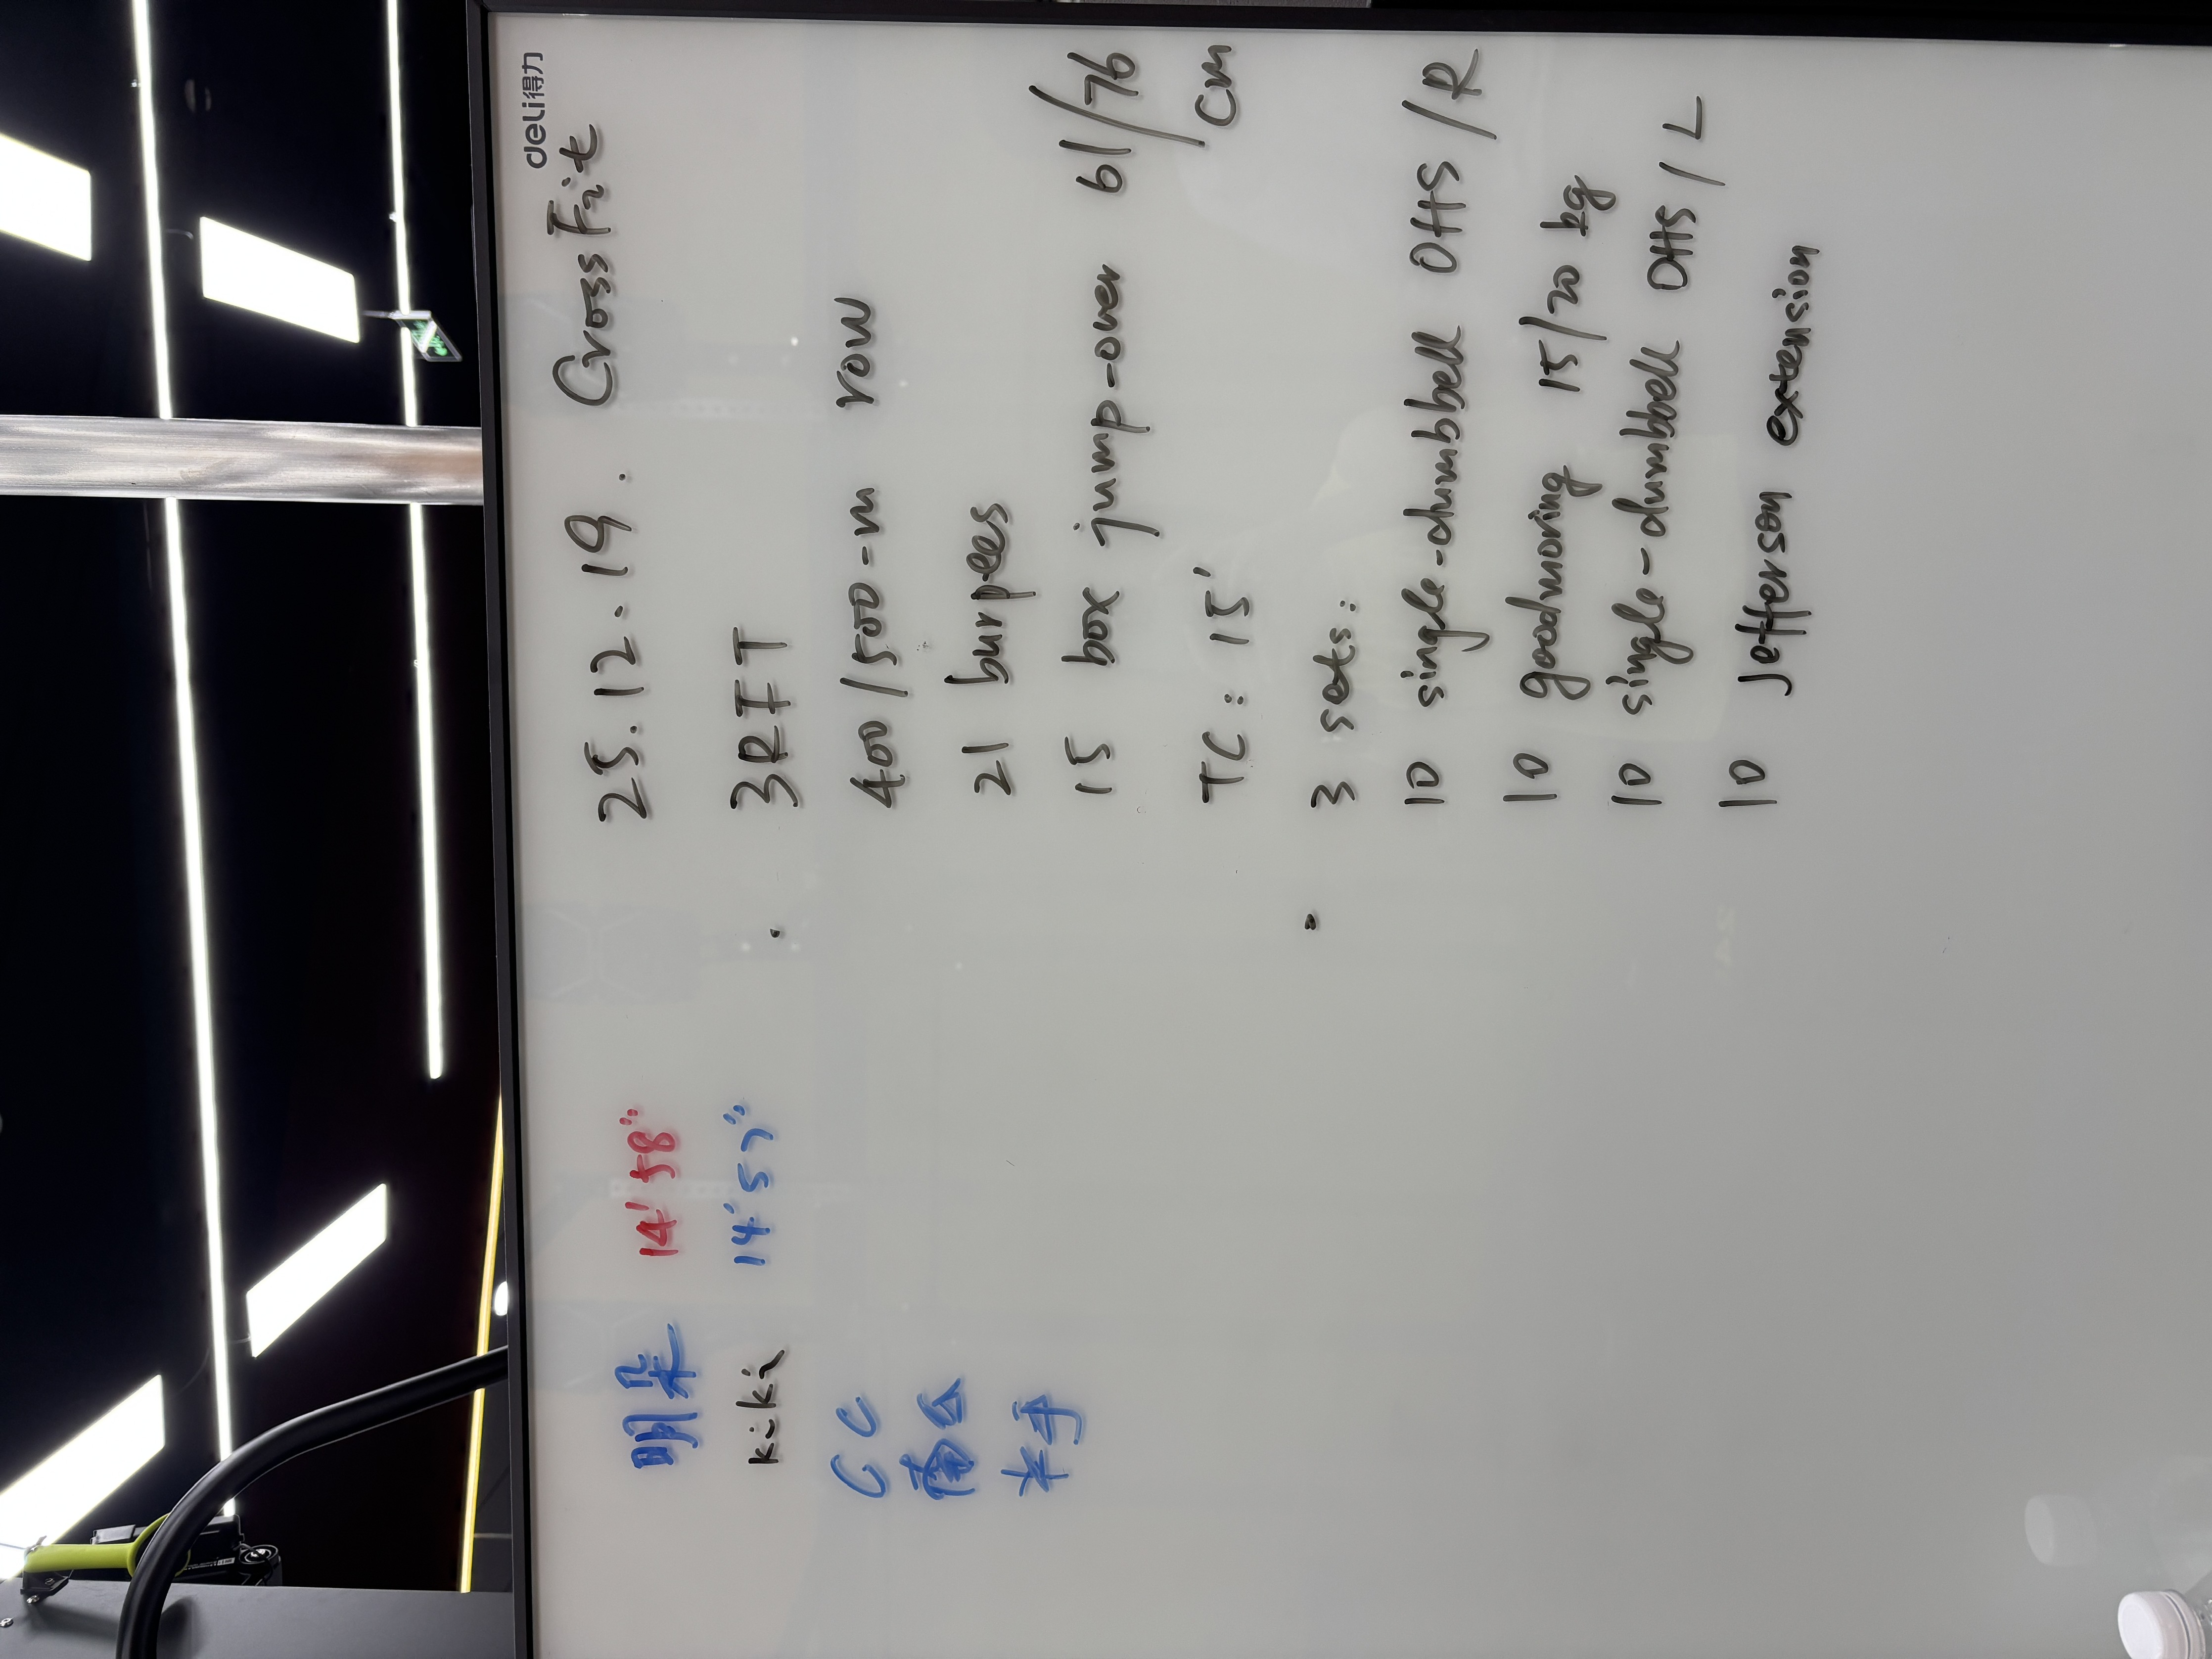 deli得力
25.12.19. CrossFit
明朵 14'58"
kiki 14'57"
CC
卡手
. 3RFT
400/500-m row
21 burpees
15 box jump-over 61/76 cm
TC: 15'
. 3 sets:
10 single-dumbbell OHS/R
10 goodmoring 15/20 kg
10 single-dumbbell OHS/L
10 Jefferson extension